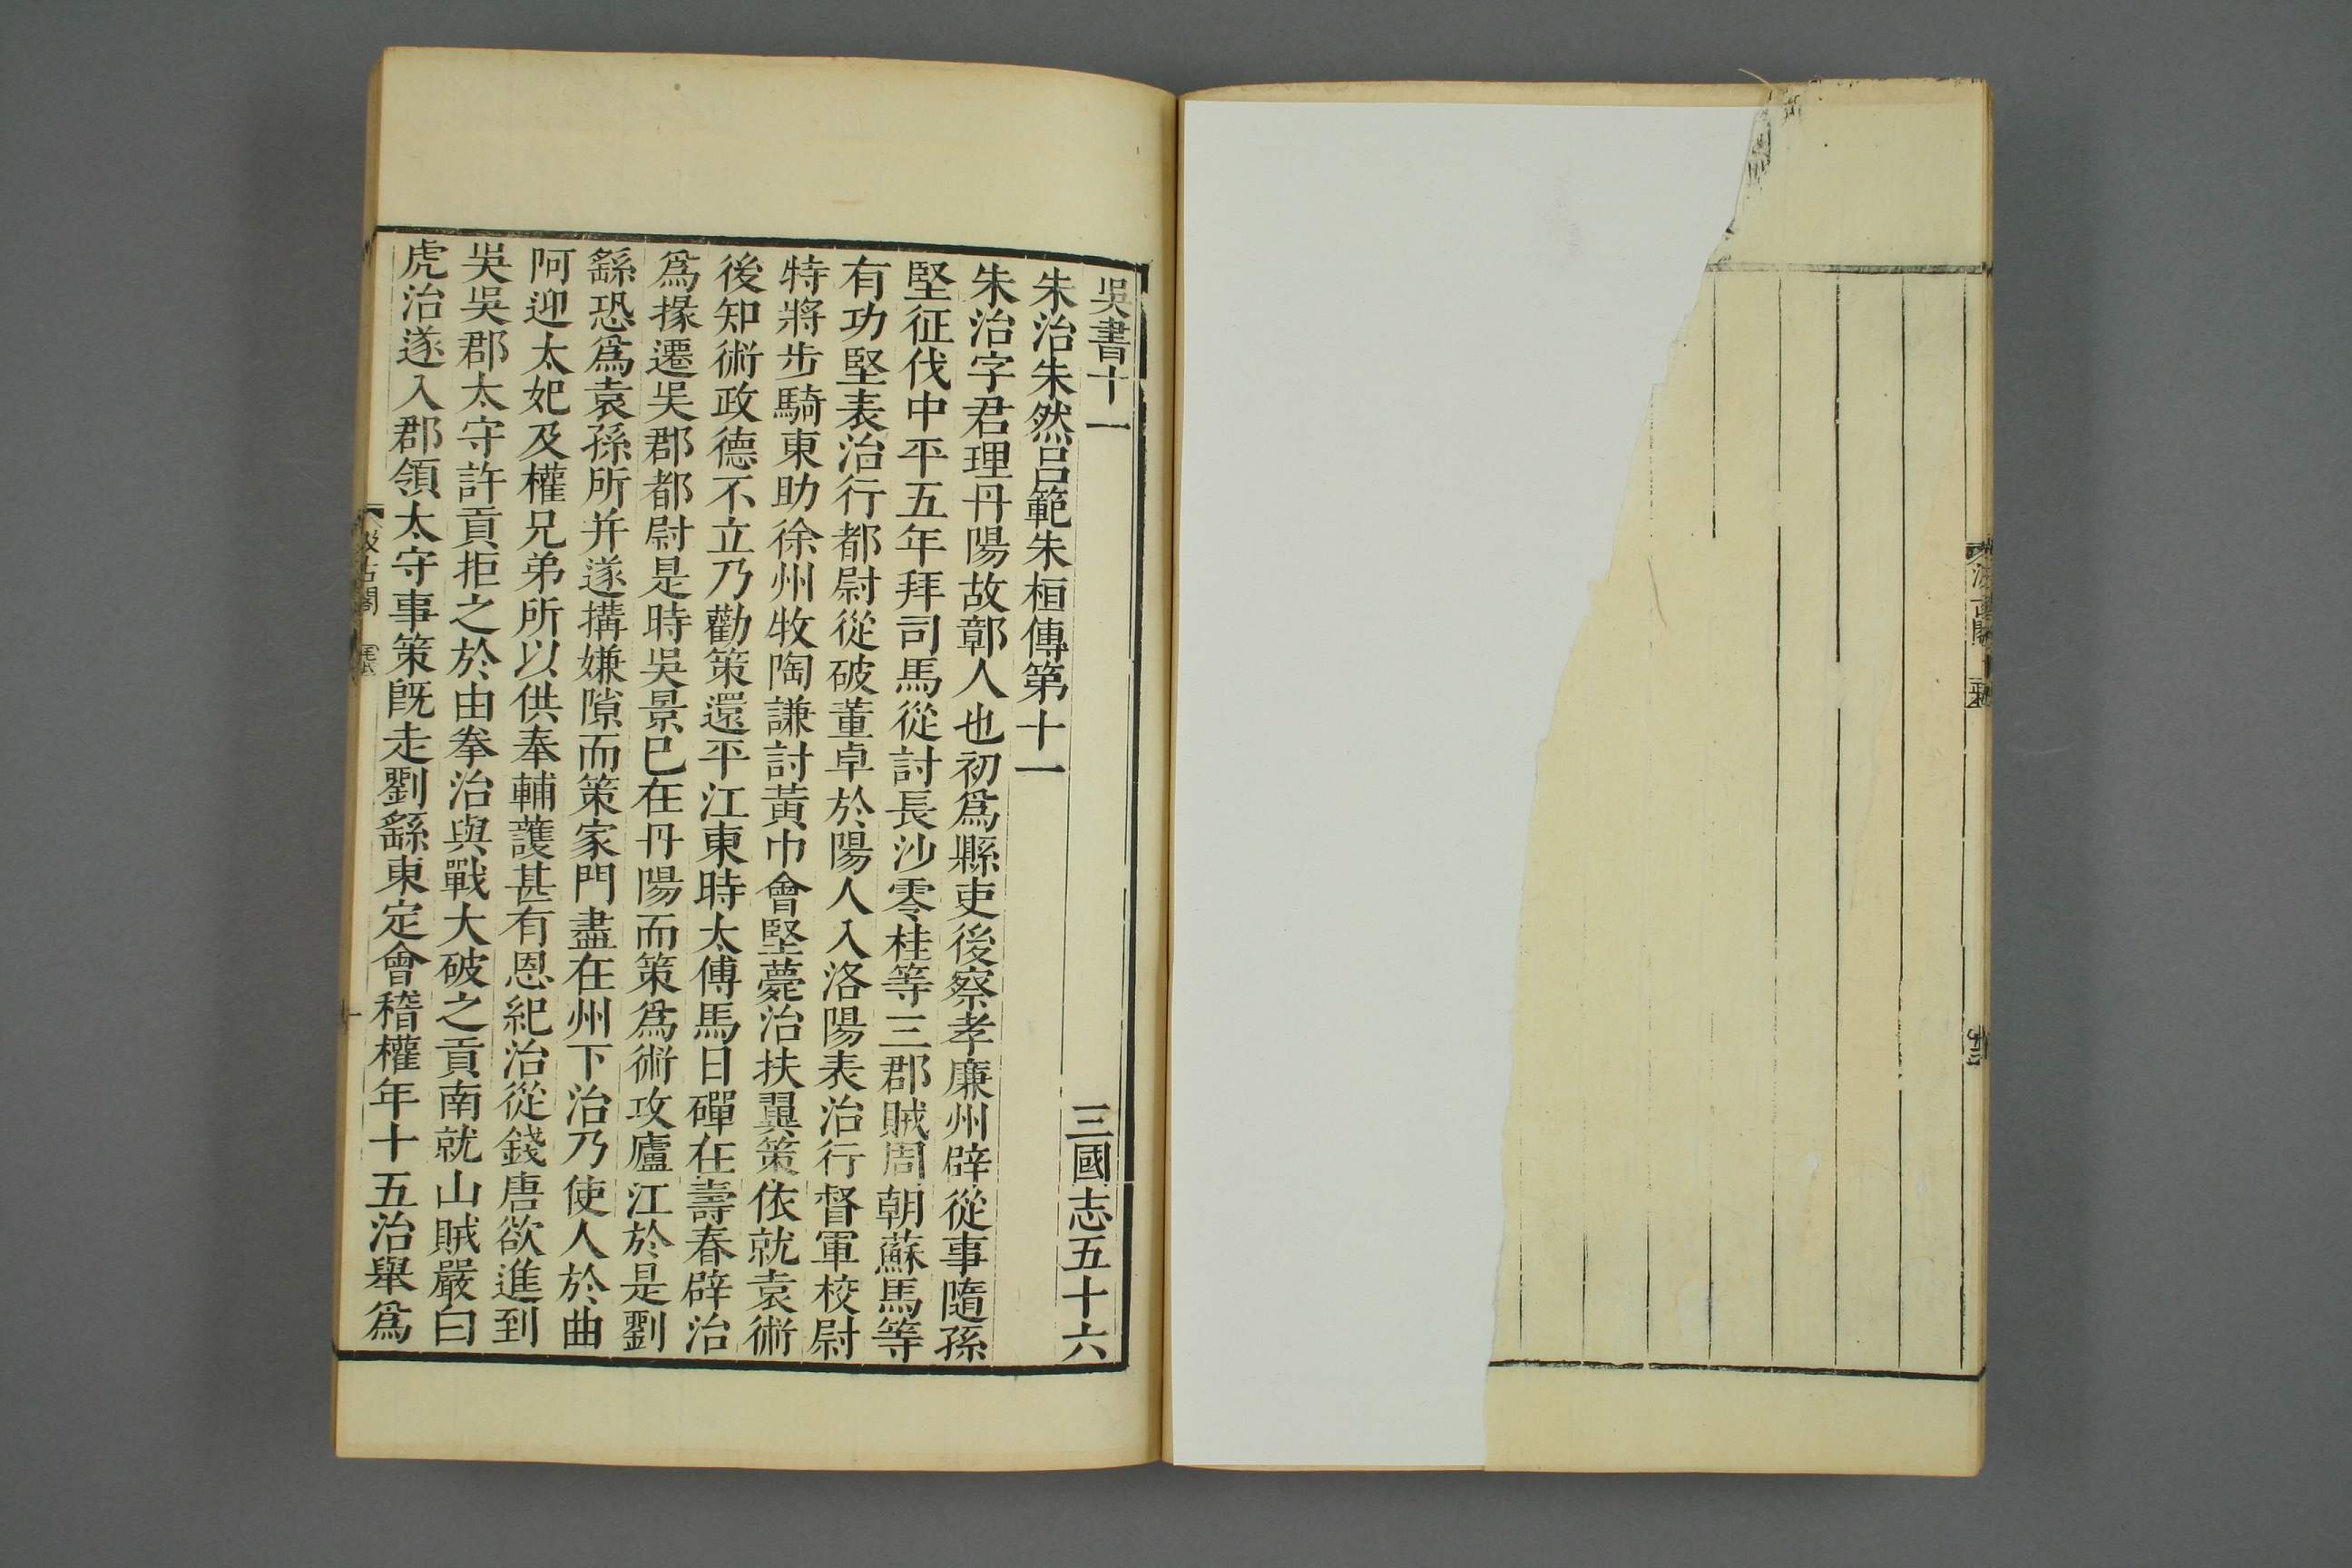 吳書十一　三國志五十六
朱治朱然呂範朱桓傳第十一
朱治字君理丹陽故鄣人也初爲縣吏後察孝廉州辟從事隨孫
堅征伐中平五年拜司馬從討長沙零桂等三郡賊周朝蘇馬等
有功堅表治行都尉從破董卓於陽人入洛陽表治行督軍校尉
特將步騎東助徐州牧陶謙討黃巾會堅薨治扶翼策依就袁術
後知術政德不立乃勸策還平江東時太傅馬日磾在壽春辟治
爲掾遷吳郡都尉是時吳景已在丹陽而策爲術攻廬江於是劉
繇恐爲袁孫所并遂搆嫌隙而策家門盡在州下治乃使人於曲
阿迎太妃及權兄弟所以供奉輔護甚有恩紀治從錢唐欲進到
吳吳郡太守許貢拒之於由拳治與戰大破之貢南就山賊嚴白
虎治遂入郡領太守事策旣走劉繇東定會稽權年十五治舉爲